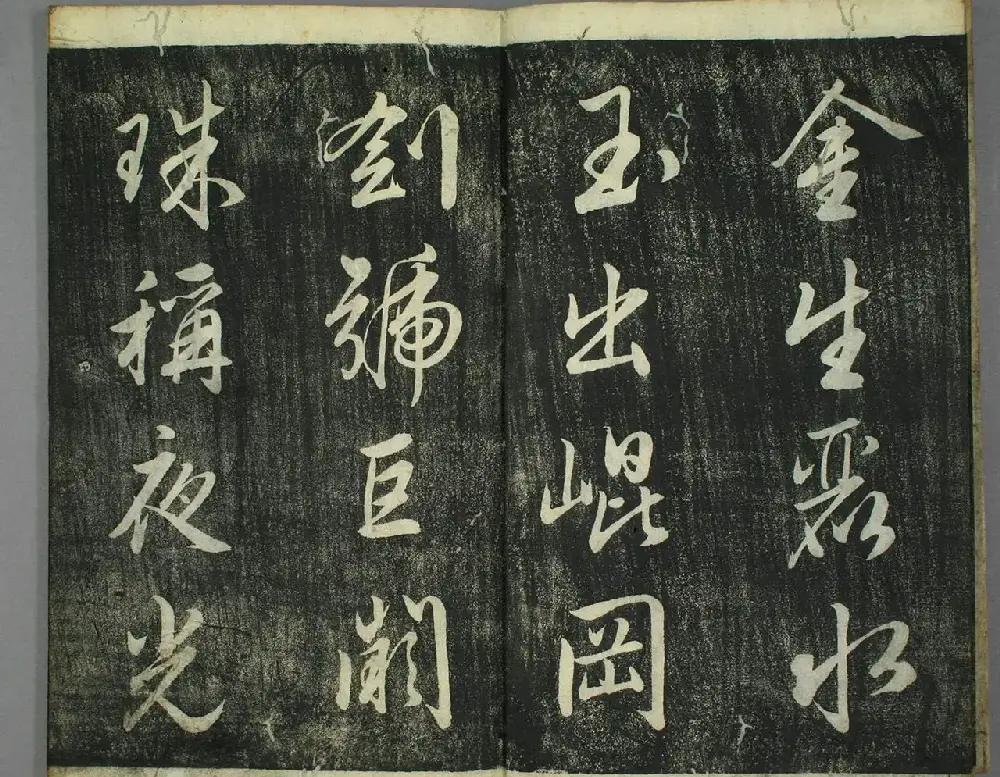 金生麗水
玉出崐岡
劍號巨闕
珠稱夜光